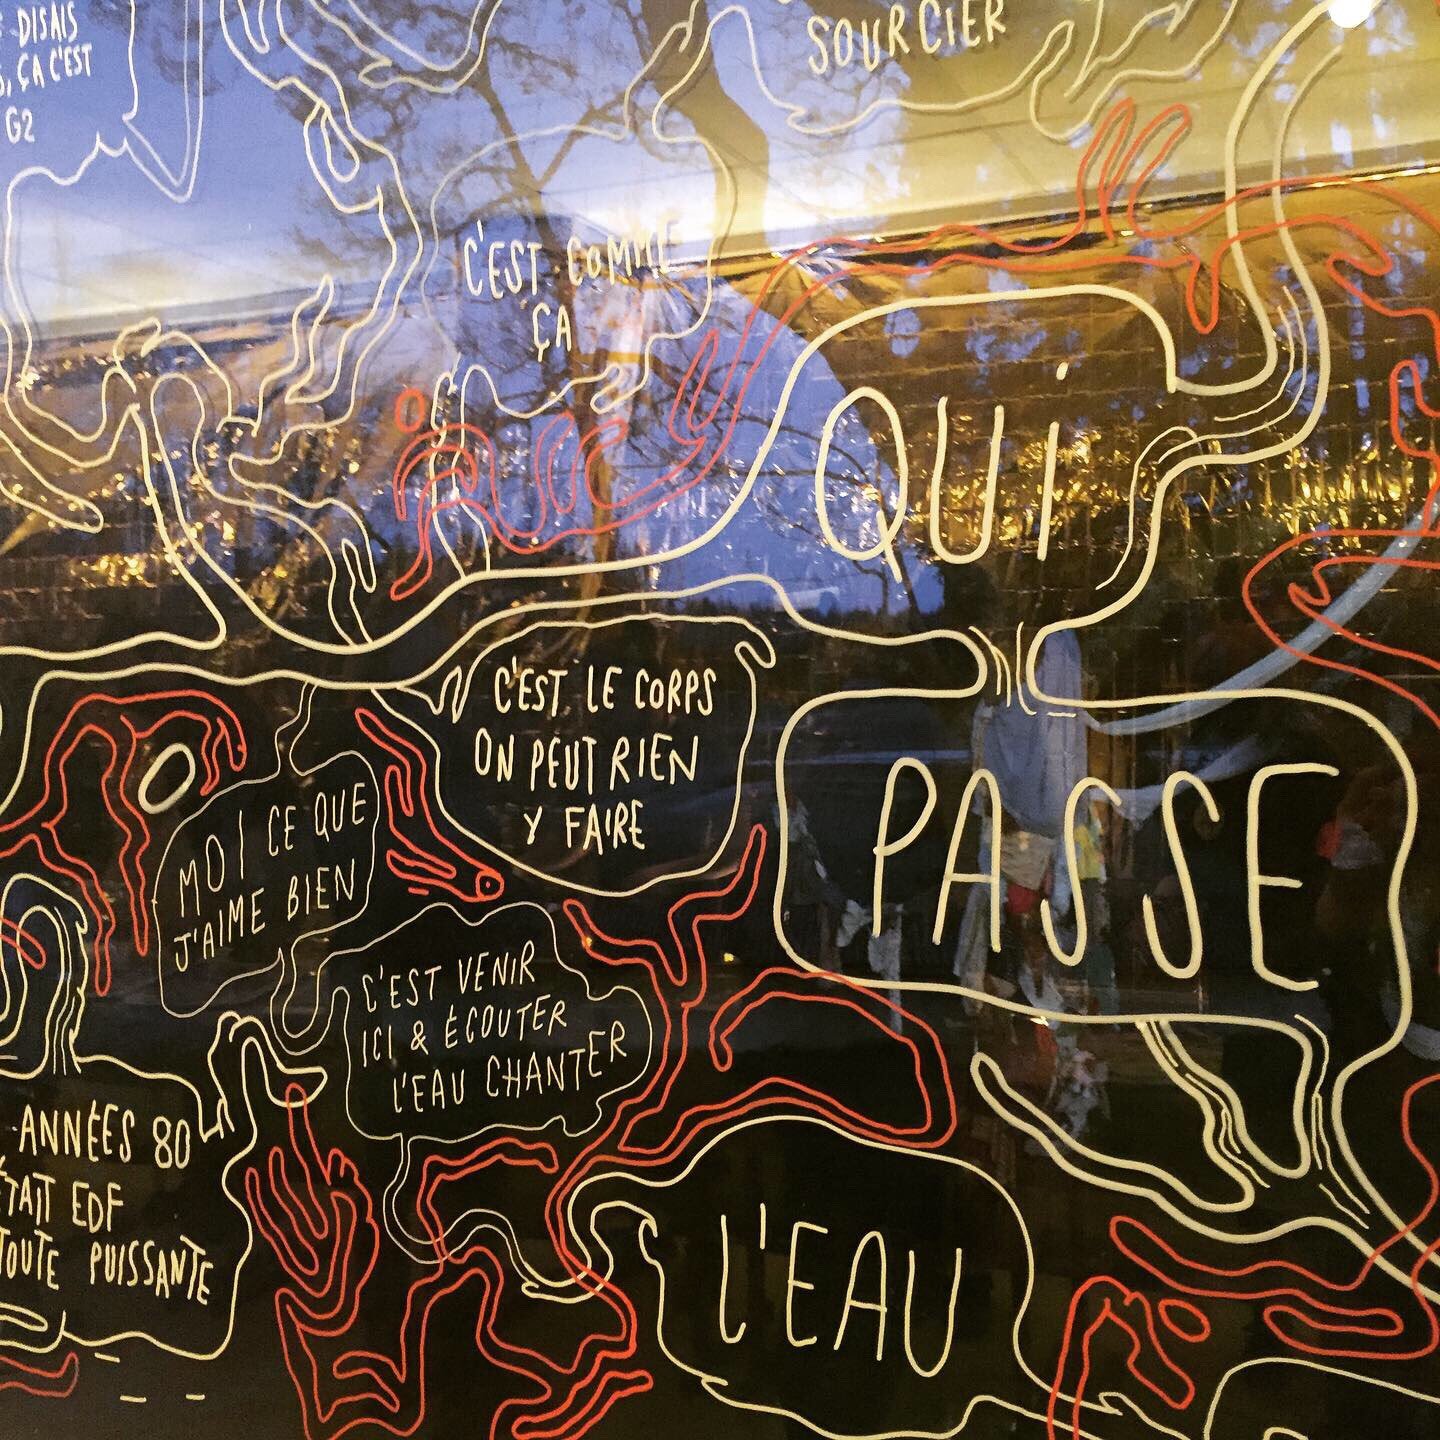 DISAIS
, ÇA C'EST
G2
SOURCIER
C'EST COMME
ÇA
QUI
C'EST LE CORPS
ON PEUT RIEN
Y FAIRE
PASSE
MOI CE QUE
J'AIME BIEN
C'EST VENIR
ICI & ÉCOUTER
L'EAU CHANTER
ANNÉES 80
ÉTAIT EDF
TOUTE PUISSANTE
L'EAU